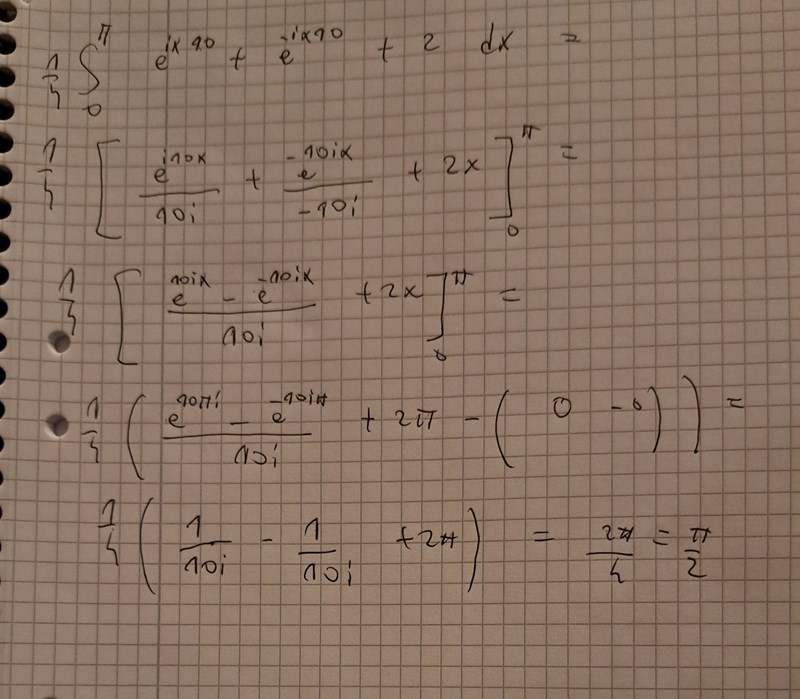 1/4 ∫₀^π e^{ix10} + e^{-ix10} + 2 dx =
1/4 [ e^{i10x}/10i + e^{-10ix}/-10i + 2x ]₀^π =
1/4 [ (e^{10ix} - e^{-10ix})/10i + 2x ]₀^π =
1/4 ( (e^{10πi} - e^{-10iπ})/10i + 2π - ( 0 - 0 ) ) =
1/4 ( 1/10i - 1/10i + 2π ) = 2π/4 = π/2